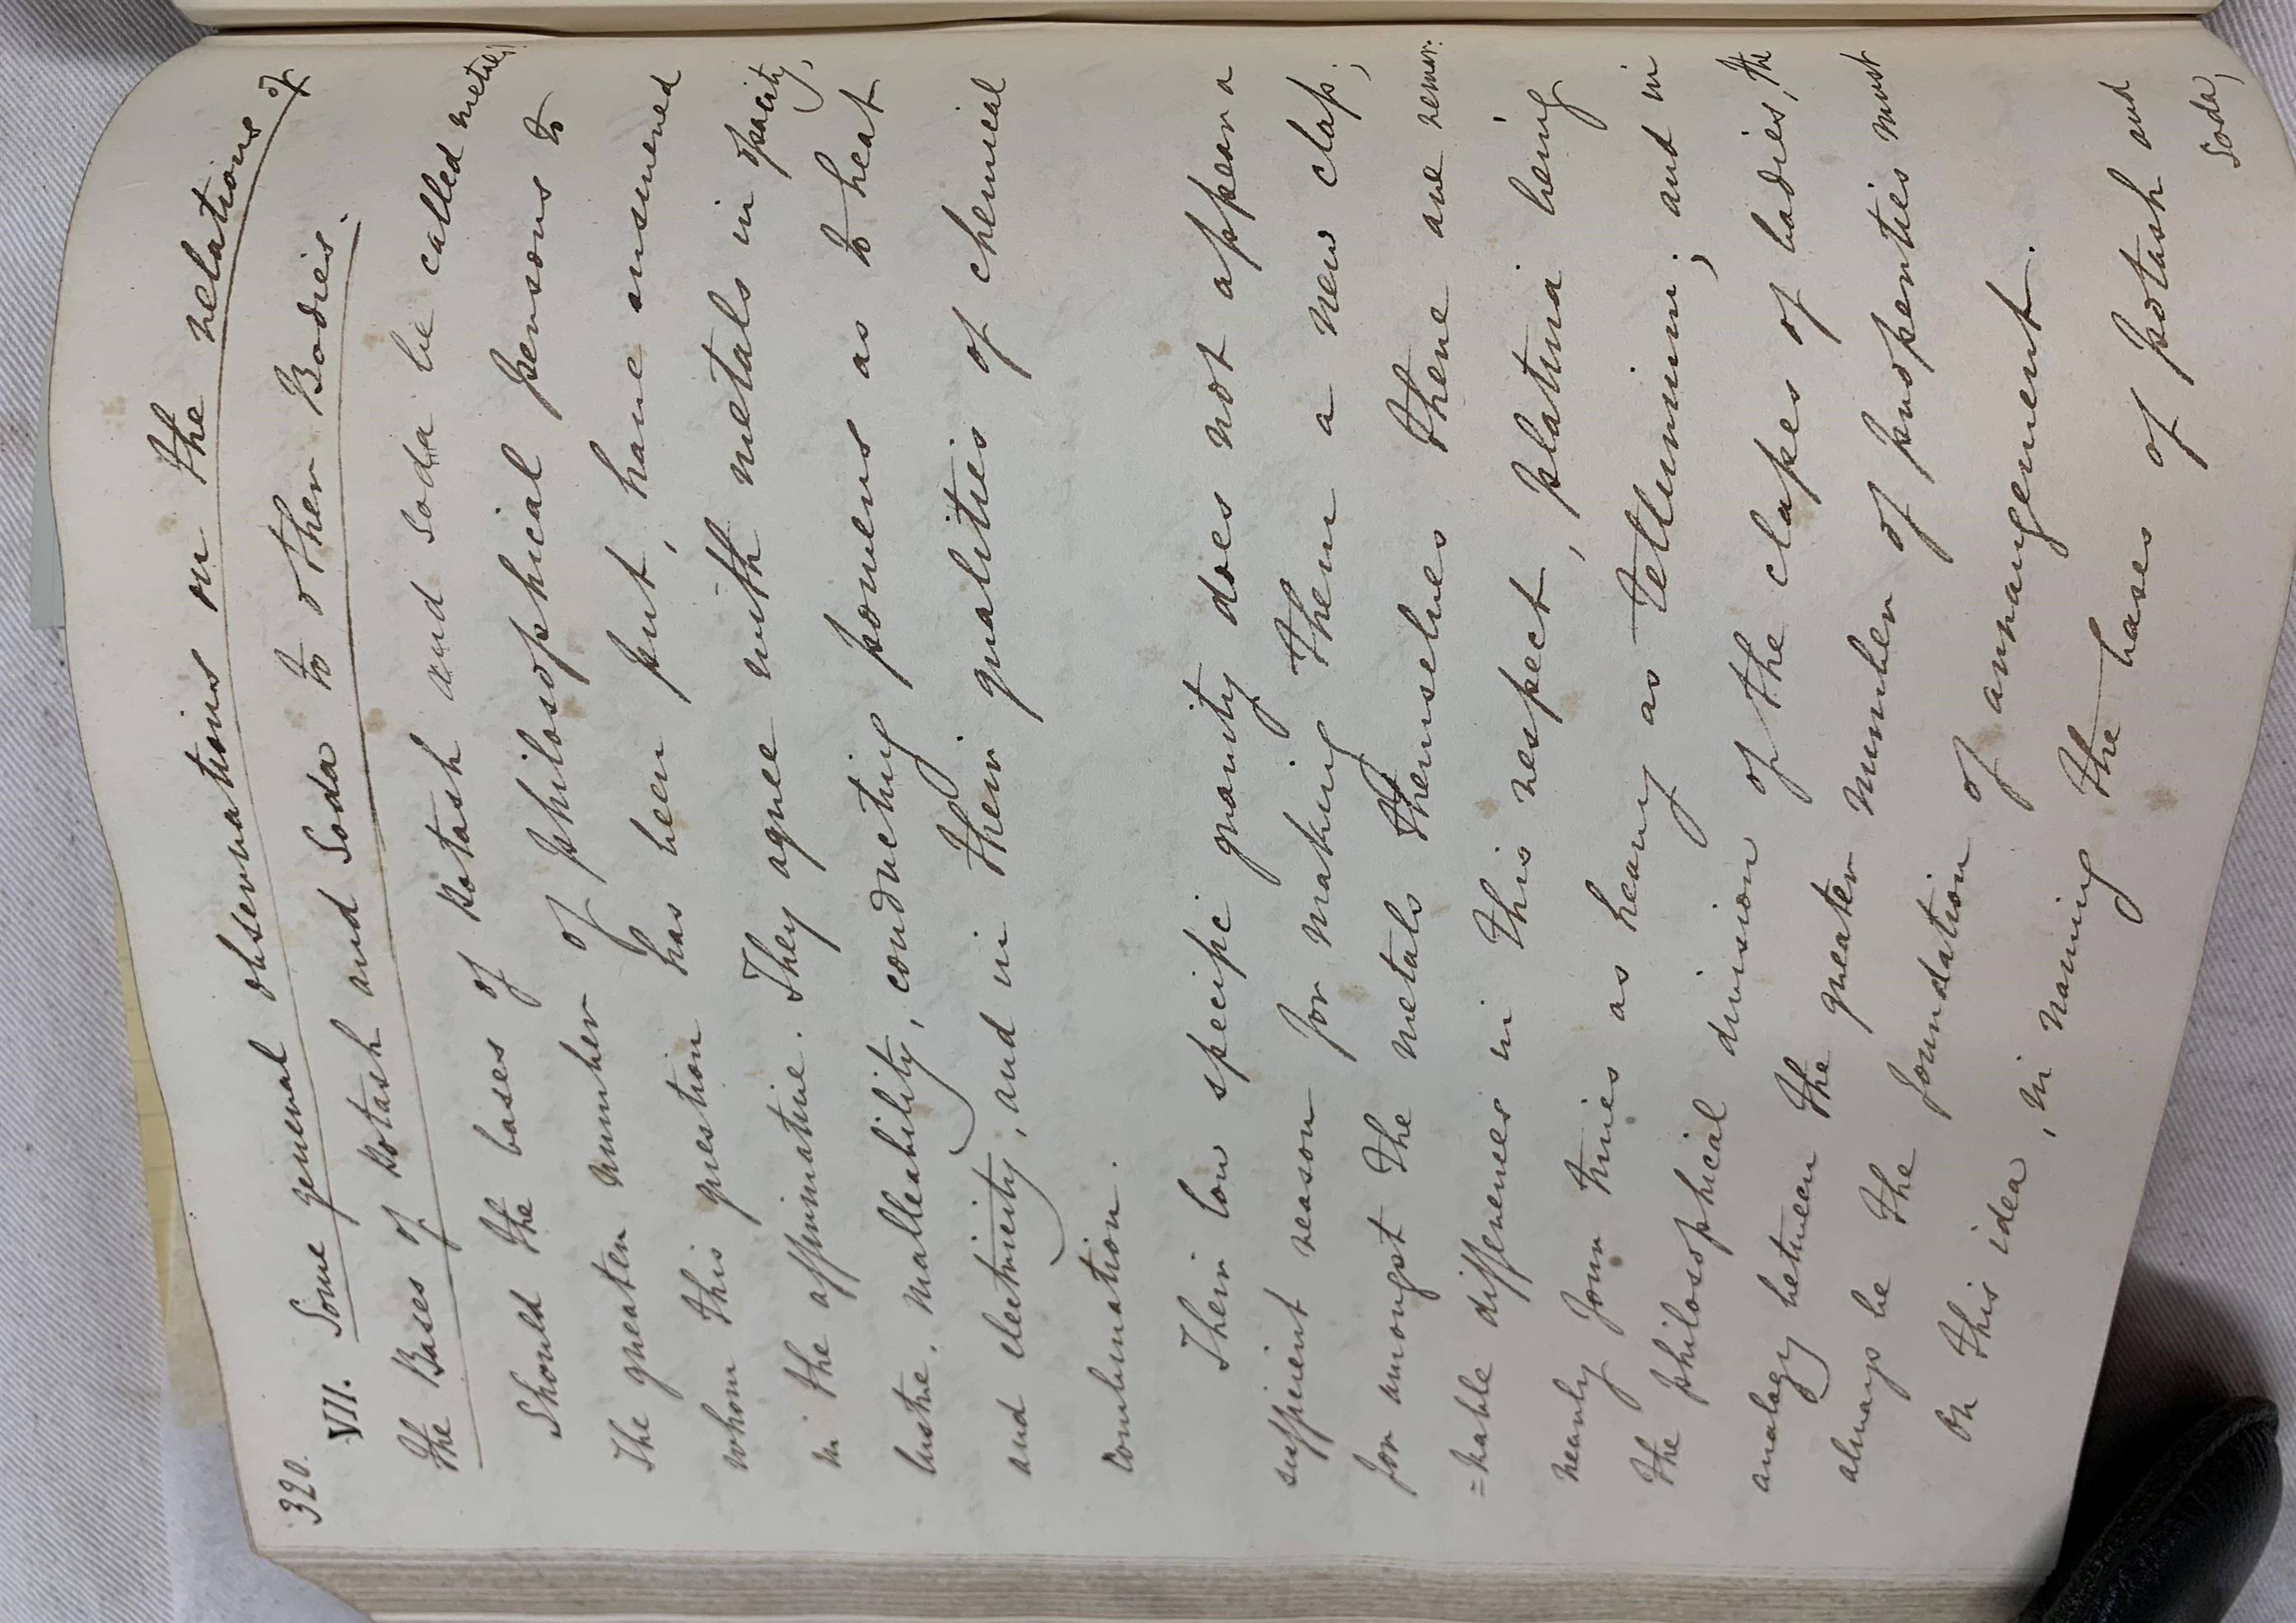 320.
VII. Some general observations on the relations of
the Bases of Potash and Soda to other Bodies.
Should the bases of Potash and Soda be called metals?
The greater number of philosophical persons to
whom this question has been put, have answered
in the affirmative. They agree with metals in opacity,
lustre, malleability, conducting powers as to heat
and electricity, and in their qualities of chemical
combination.
Their low specific gravity does not appear a
sufficient reason for making them a new claſs;
for amongst the metals themselves there are remar:
=kable differences in this respect, platina being
nearly four times as heavy as tellurium; and in
the philosophical division of the claſses of bodies, the
analogy between the greater number of properties must
always be the foundation of arrangement.
On this idea, in naming the bases of potash and
Soda,